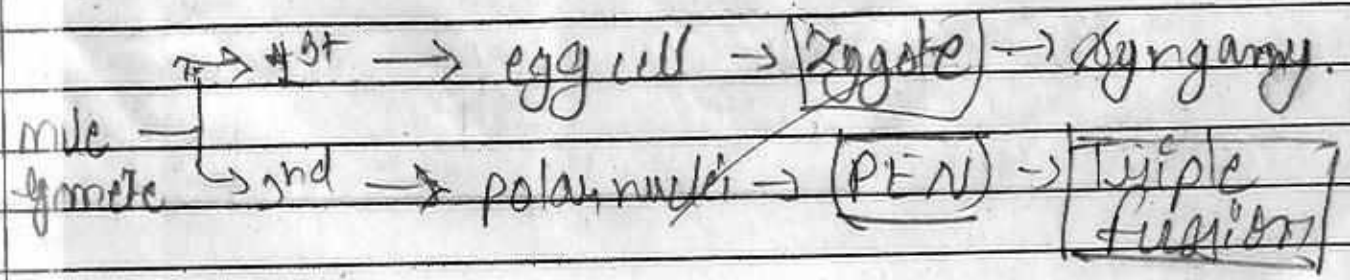 → 1st → egg cell → Zygote → Syngamy.
male gamete
→ 2nd → polar nuclei → PEN → Triple fusion